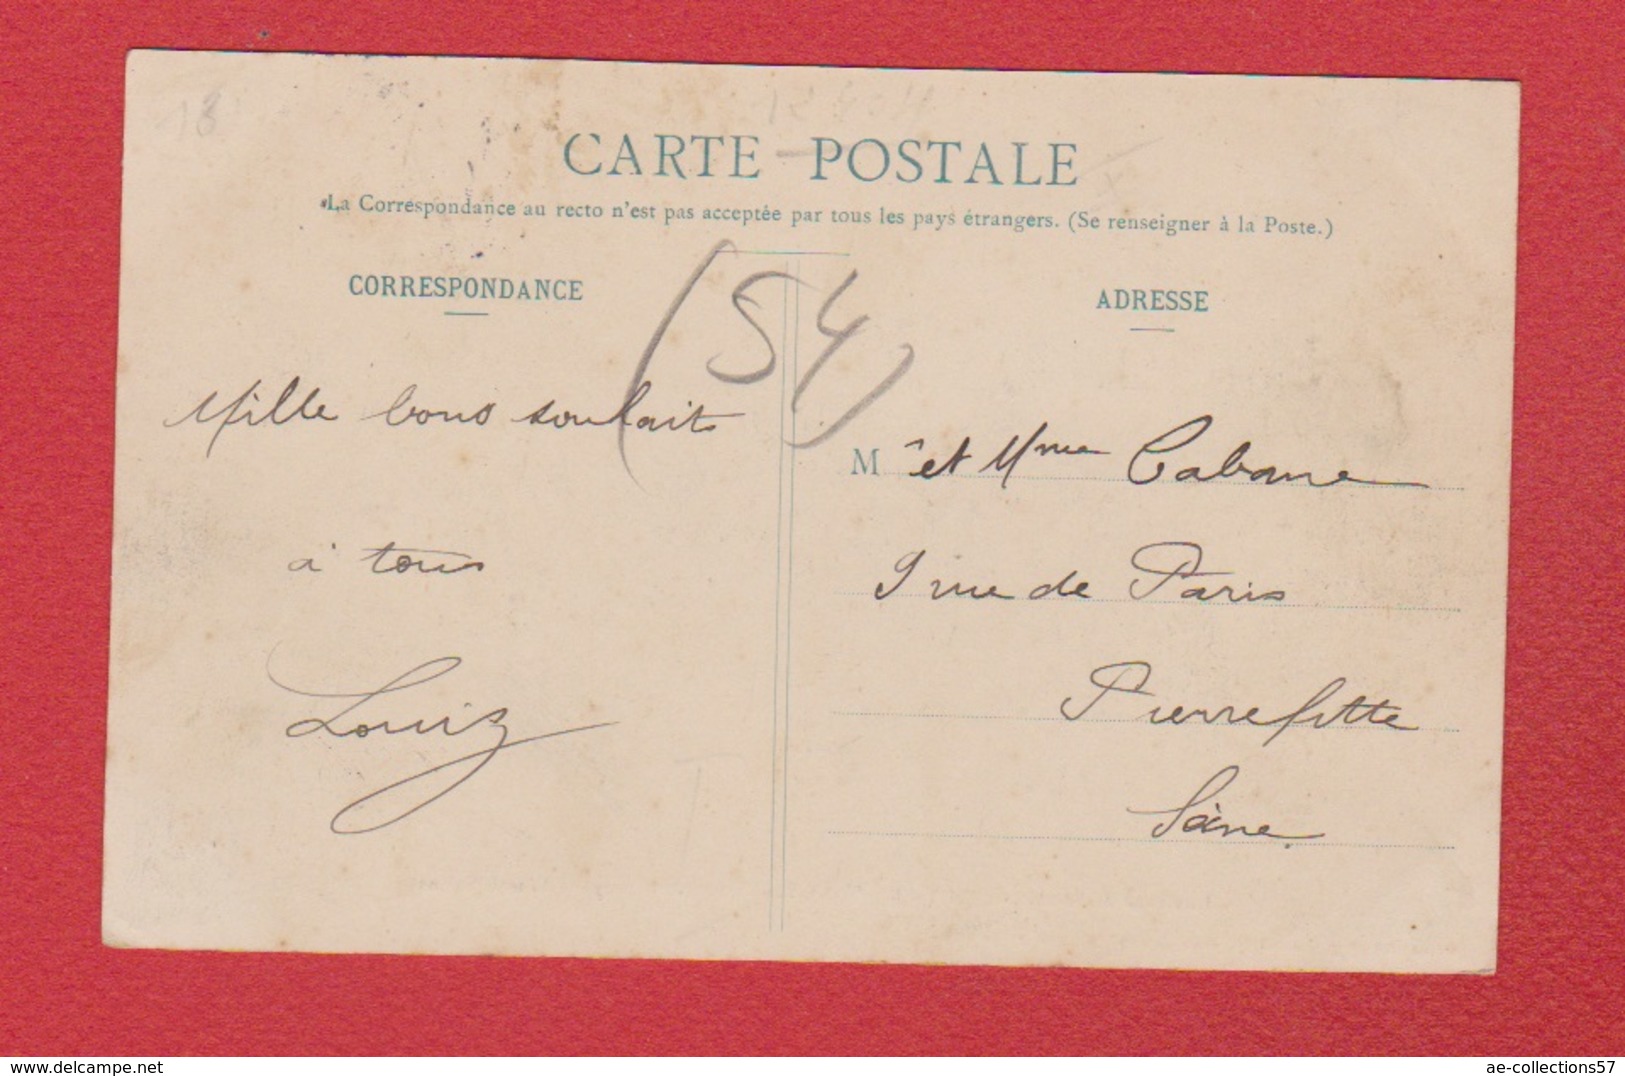 18
CARTE POSTALE
La Correspondance au recto n'est pas acceptée par tous les pays étrangers. (Se renseigner à la Poste.)
CORRESPONDANCE
(54)
Mille bons souhaits
à tous
Louis
ADRESSE
M et Mme Cabane
9 rue de Paris
Pierrefitte
Seine
delcampe.net
ae-collections57